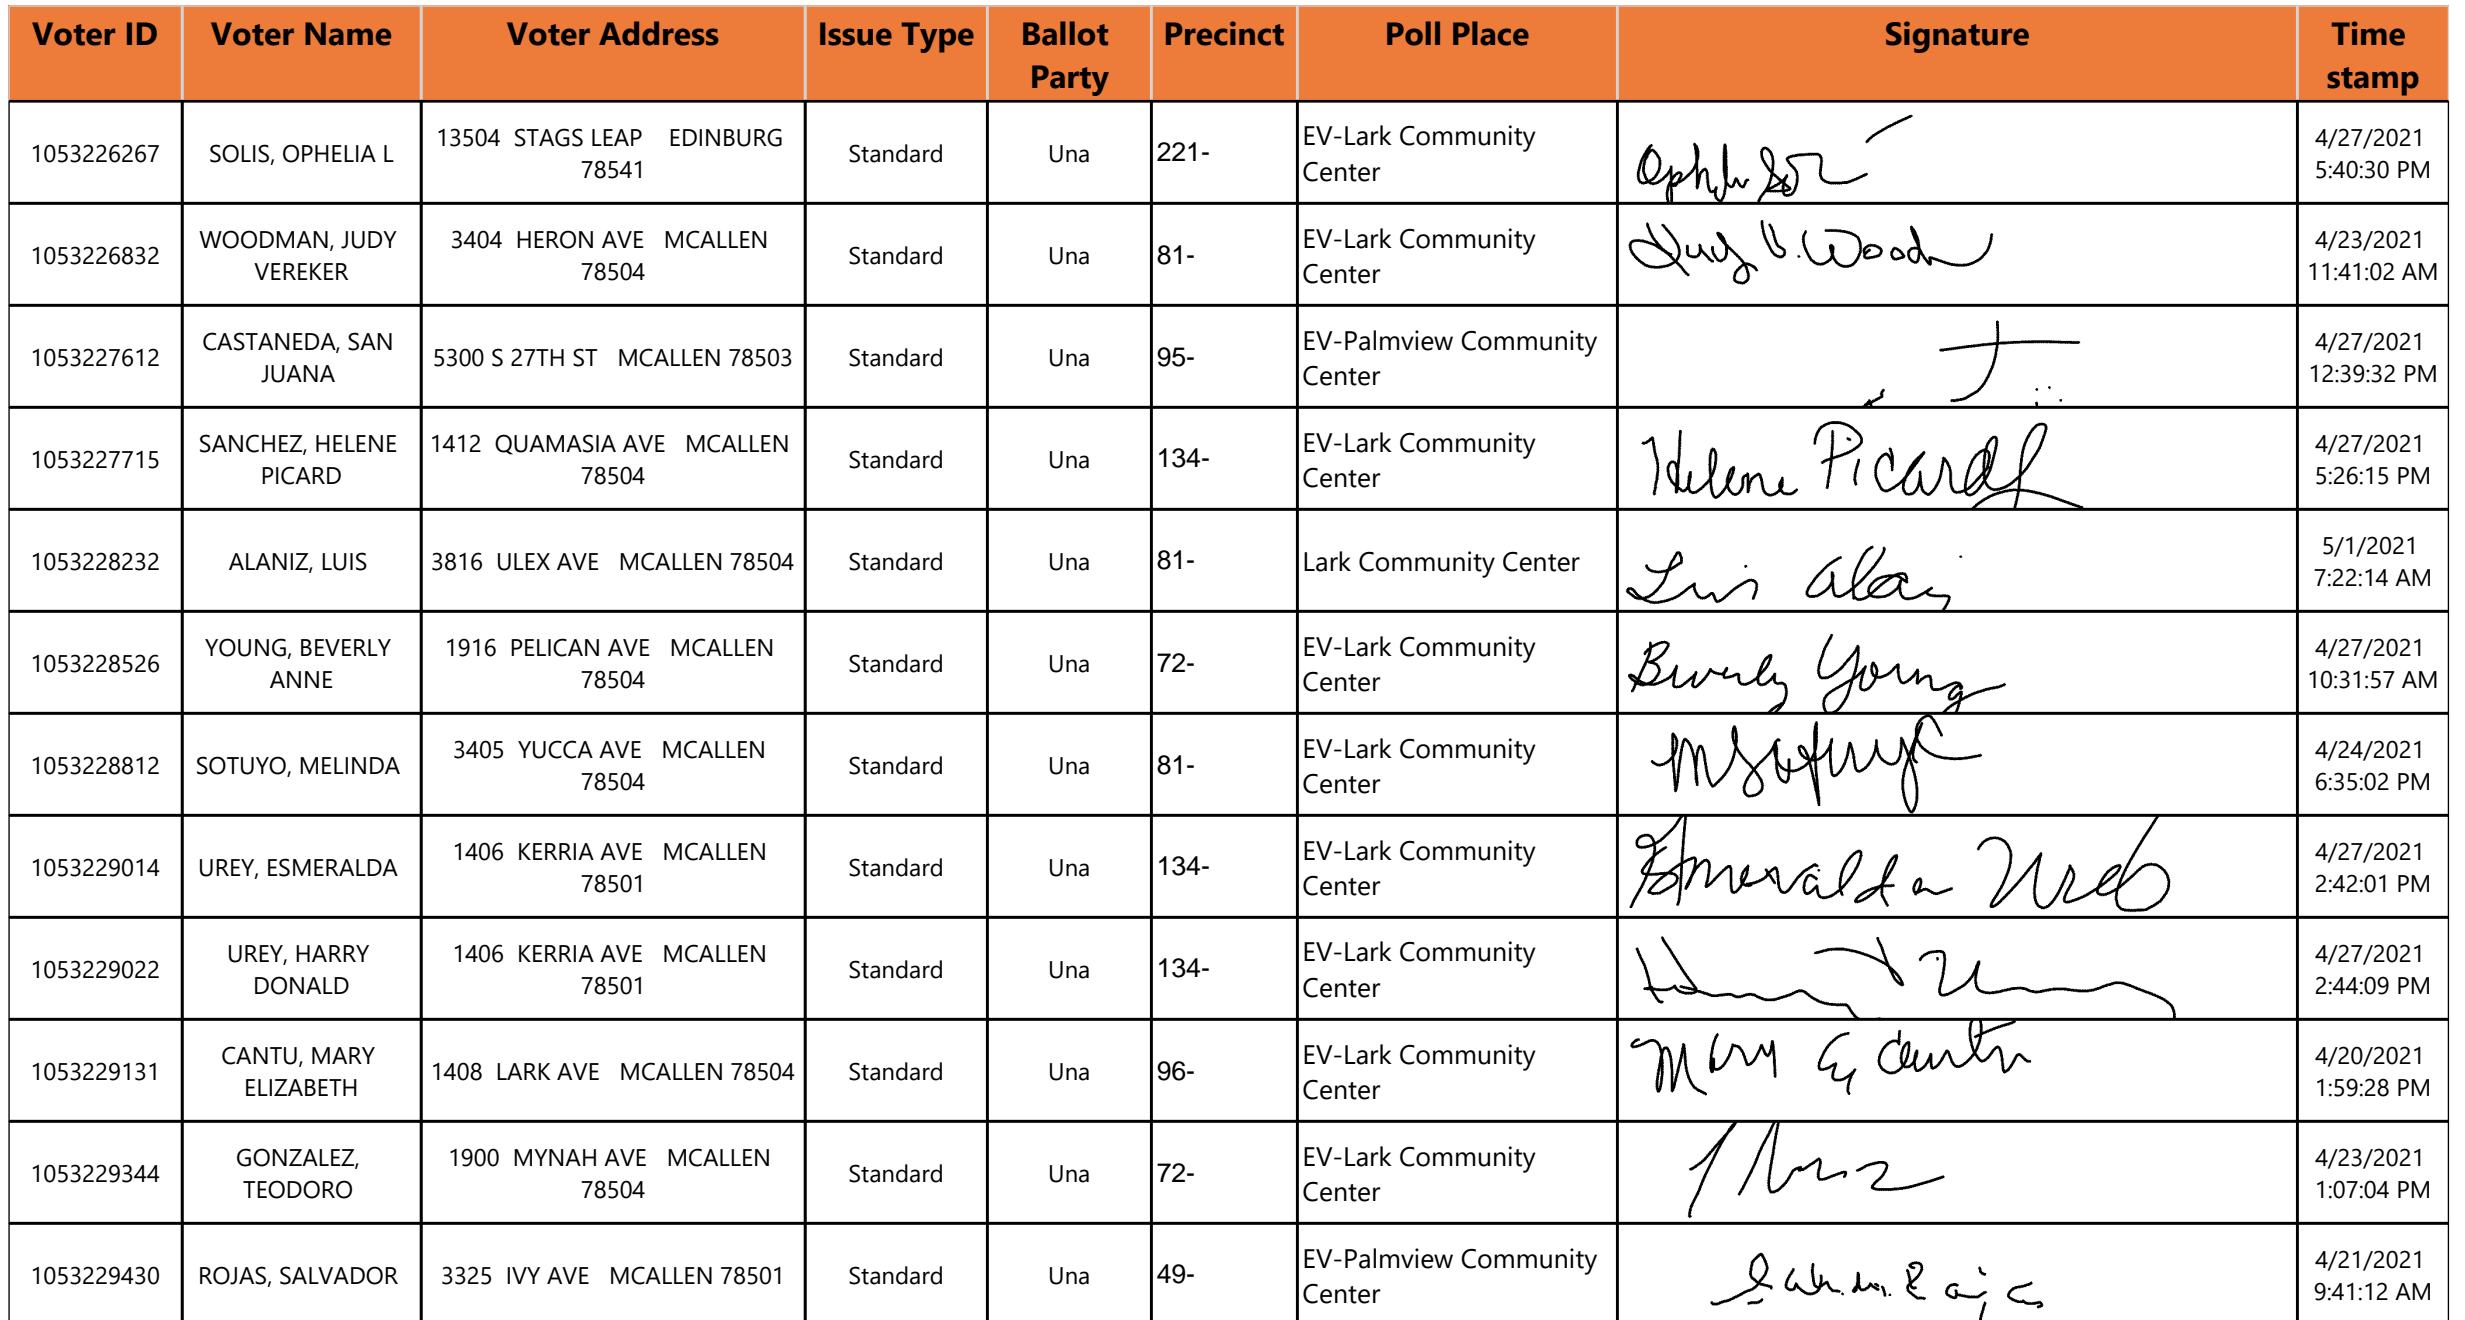 Voter ID Voter Name Voter Address Issue Type Ballot Party Precinct Poll Place Signature Time stamp
1053226267 SOLIS, OPHELIA L 13504 STAGS LEAP EDINBURG 78541 Standard Una 221- EV-Lark Community Center 4/27/2021 5:40:30 PM
1053226832 WOODMAN, JUDY VEREKER 3404 HERON AVE MCALLEN 78504 Standard Una 81- EV-Lark Community Center Judy V. Wood 4/23/2021 11:41:02 AM
1053227612 CASTANEDA, SAN JUANA 5300 S 27TH ST MCALLEN 78503 Standard Una 95- EV-Palmview Community Center 4/27/2021 12:39:32 PM
1053227715 SANCHEZ, HELENE PICARD 1412 QUAMASIA AVE MCALLEN 78504 Standard Una 134- EV-Lark Community Center Helene Picard 4/27/2021 5:26:15 PM
1053228232 ALANIZ, LUIS 3816 ULEX AVE MCALLEN 78504 Standard Una 81- Lark Community Center Luis 5/1/2021 7:22:14 AM
1053228526 YOUNG, BEVERLY ANNE 1916 PELICAN AVE MCALLEN 78504 Standard Una 72- EV-Lark Community Center Beverly Young 4/27/2021 10:31:57 AM
1053228812 SOTUYO, MELINDA 3405 YUCCA AVE MCALLEN 78504 Standard Una 81- EV-Lark Community Center 4/24/2021 6:35:02 PM
1053229014 UREY, ESMERALDA 1406 KERRIA AVE MCALLEN 78501 Standard Una 134- EV-Lark Community Center Esmeralda 4/27/2021 2:42:01 PM
1053229022 UREY, HARRY DONALD 1406 KERRIA AVE MCALLEN 78501 Standard Una 134- EV-Lark Community Center 4/27/2021 2:44:09 PM
1053229131 CANTU, MARY ELIZABETH 1408 LARK AVE MCALLEN 78504 Standard Una 96- EV-Lark Community Center Mary E Cantu 4/20/2021 1:59:28 PM
1053229344 GONZALEZ, TEODORO 1900 MYNAH AVE MCALLEN 78504 Standard Una 72- EV-Lark Community Center 4/23/2021 1:07:04 PM
1053229430 ROJAS, SALVADOR 3325 IVY AVE MCALLEN 78501 Standard Una 49- EV-Palmview Community Center 4/21/2021 9:41:12 AM